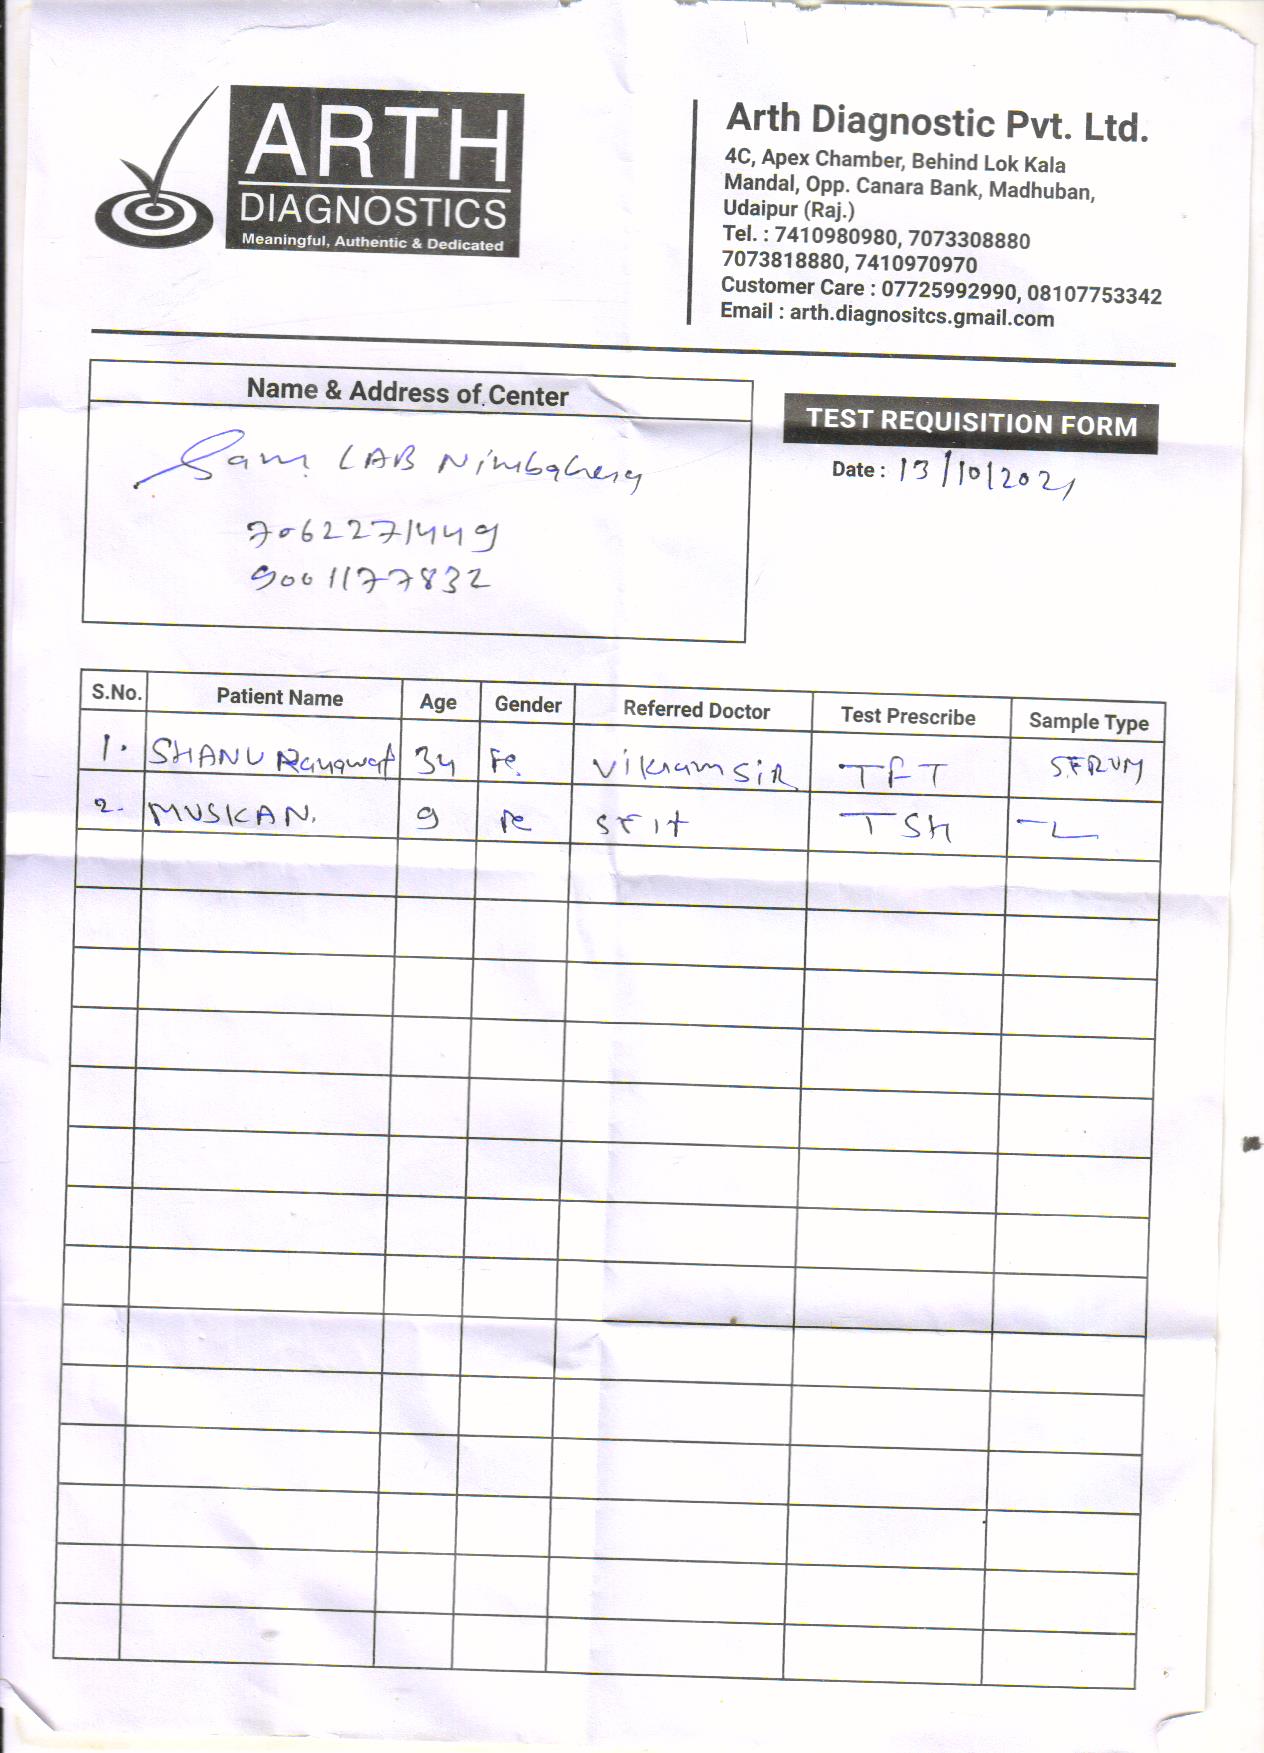 ARTH
DIAGNOSTICS
Meaningful, Authentic & Dedicated
Arth Diagnostic Pvt. Ltd.
4C, Apex Chamber, Behind Lok Kala
Mandal, Opp. Canara Bank, Madhuban,
Udaipur (Raj.)
Tel. : 7410980980, 7073308880
7073818880, 7410970970
Customer Care : 07725992990, 08107753342
Email : arth.diagnositcs.gmail.com
Name & Address of Center
LAB
7062271449
9001177832
TEST REQUISITION FORM
Date : 13/10/2021
S.No. Patient Name Age Gender Referred Doctor Test Prescribe Sample Type
1. SHANU 34 Fe. Vikram SIR TFT SERUM
2. MUSKAN. 9 Fe TSH